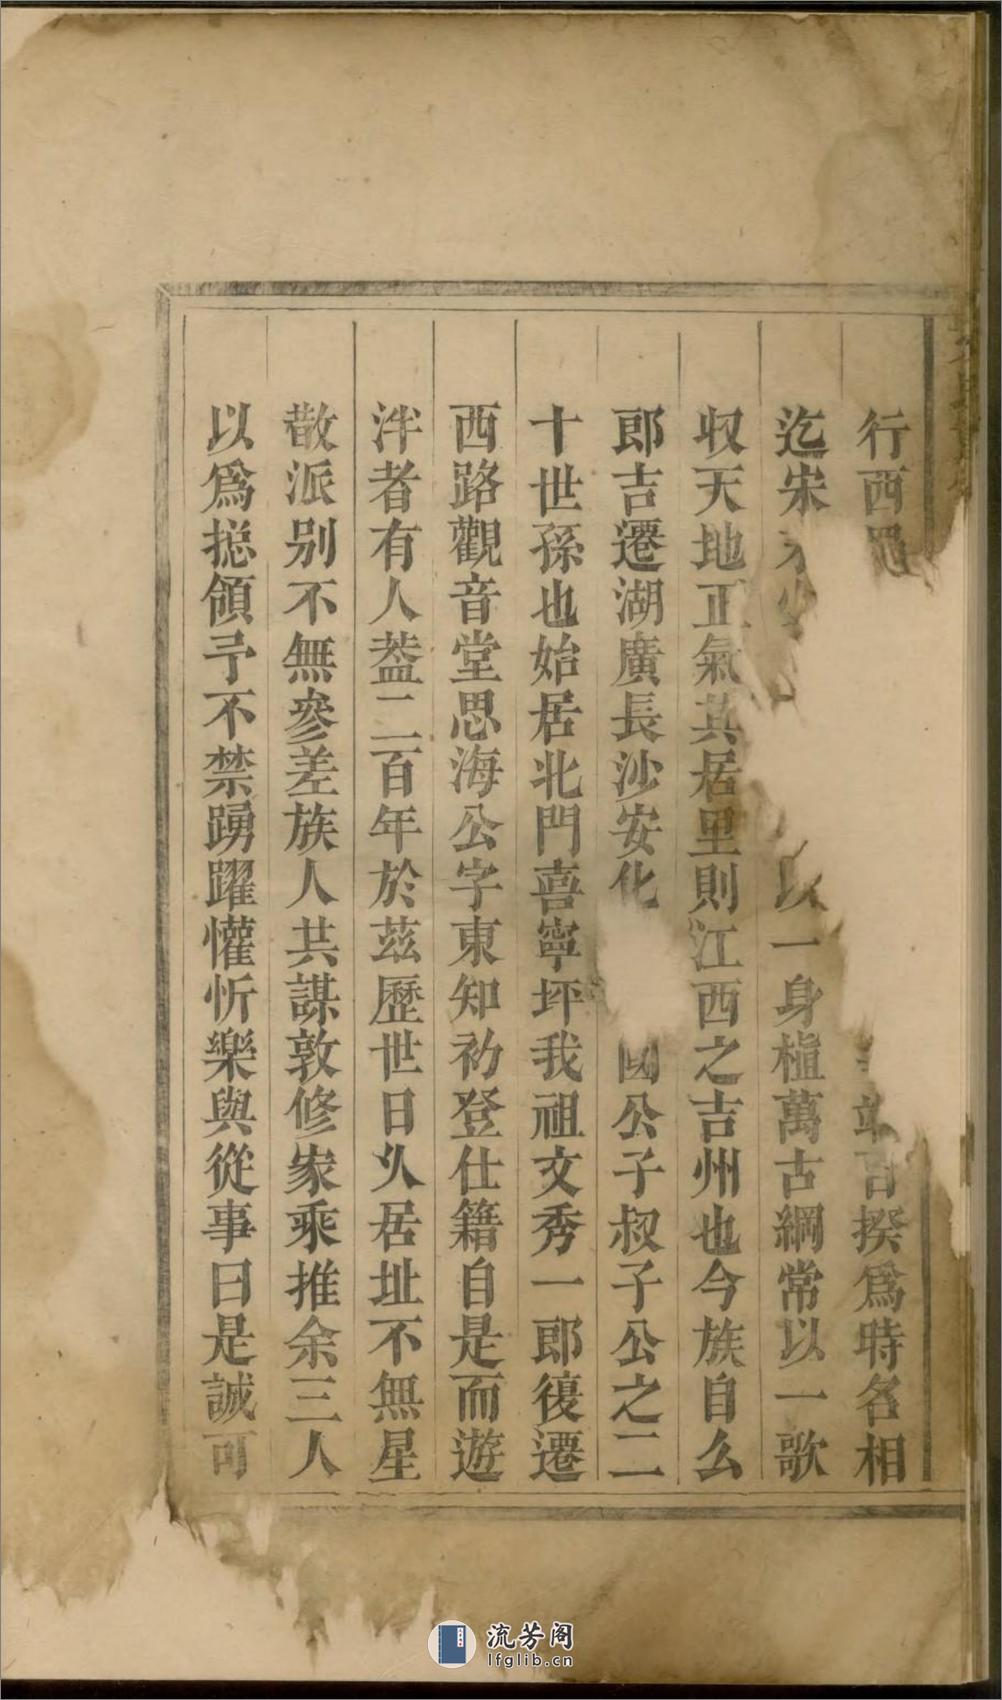 行西蜀百揆爲時名相
迄宋以一身植萬古綱常以一歌
収天地正氣其居里則江西之吉州也今族自么
郎吉遷湖廣長沙安化國公子叔子公之二
十世孫也始居北門喜寧坪我祖文秀一郎復遷
西路觀音堂思海公字東知礽登仕籍自是而遊
泮者有人葢二百年於茲歷世日乆居址不無星
散派别不無參差族人共謀敦修家乘推余三人
以爲捴領予不禁踴躍懽忻樂與從事曰是誠可
流芳阁
lfglib.cn